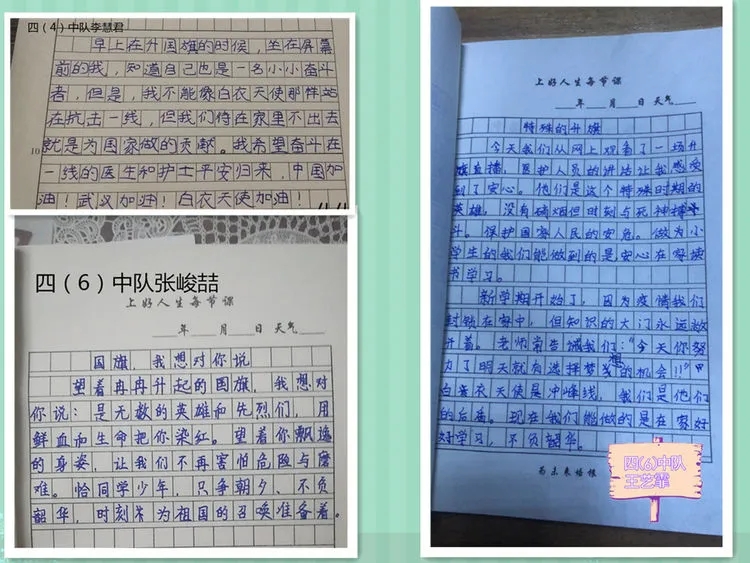 四（4）中队李慧君
早上在升国旗的时候，坐在屏幕
前的我，知道自己也是一名小小奋斗
者，但是，我不能像白衣天使那样站
在抗击一线，但我们待在家里不出去
就是为国家做的贡献。我希望奋斗在
10
一线的医生和护士平安归来，中国加
油！武汉加油！白衣天使加油！
四（6）中队张峻喆
上好人生每节课
年 月 日 天气
国旗，我想对你说
望着冉冉升起的国旗，我想对
你说：是无数的英雄和先烈们，用
鲜血和生命把你染红。望着你飘逸
的身姿，让我们不再害怕危险与磨
难。恰同学少年，只争朝夕、不负
韶华，时刻为祖国的召唤准备着。
上好人生每节课
年 月 日 天气
特殊的升旗
今天我们从网上观看了一场升
旗直播，医护人员的讲话让我感受
到了安心。他们是这个特殊时期的
英雄，没有硝烟但时刻与死神搏斗
斗。保护国家人民的安危。做为小
学生的我们能做到的是，安心在家读
书学习。
新学期开始了，因为疫情我们
封锁在家中，但知识的大门永远敞
开着。老师常告诫我们："今天你努
力了明天就有选择梦想的机会！！"
白衣天使是冲峰线，我们是他们
的后盾。现在我们能做的是在家好
好学习，不负韶华。
为未来培根
四(6)中队
王艺霏